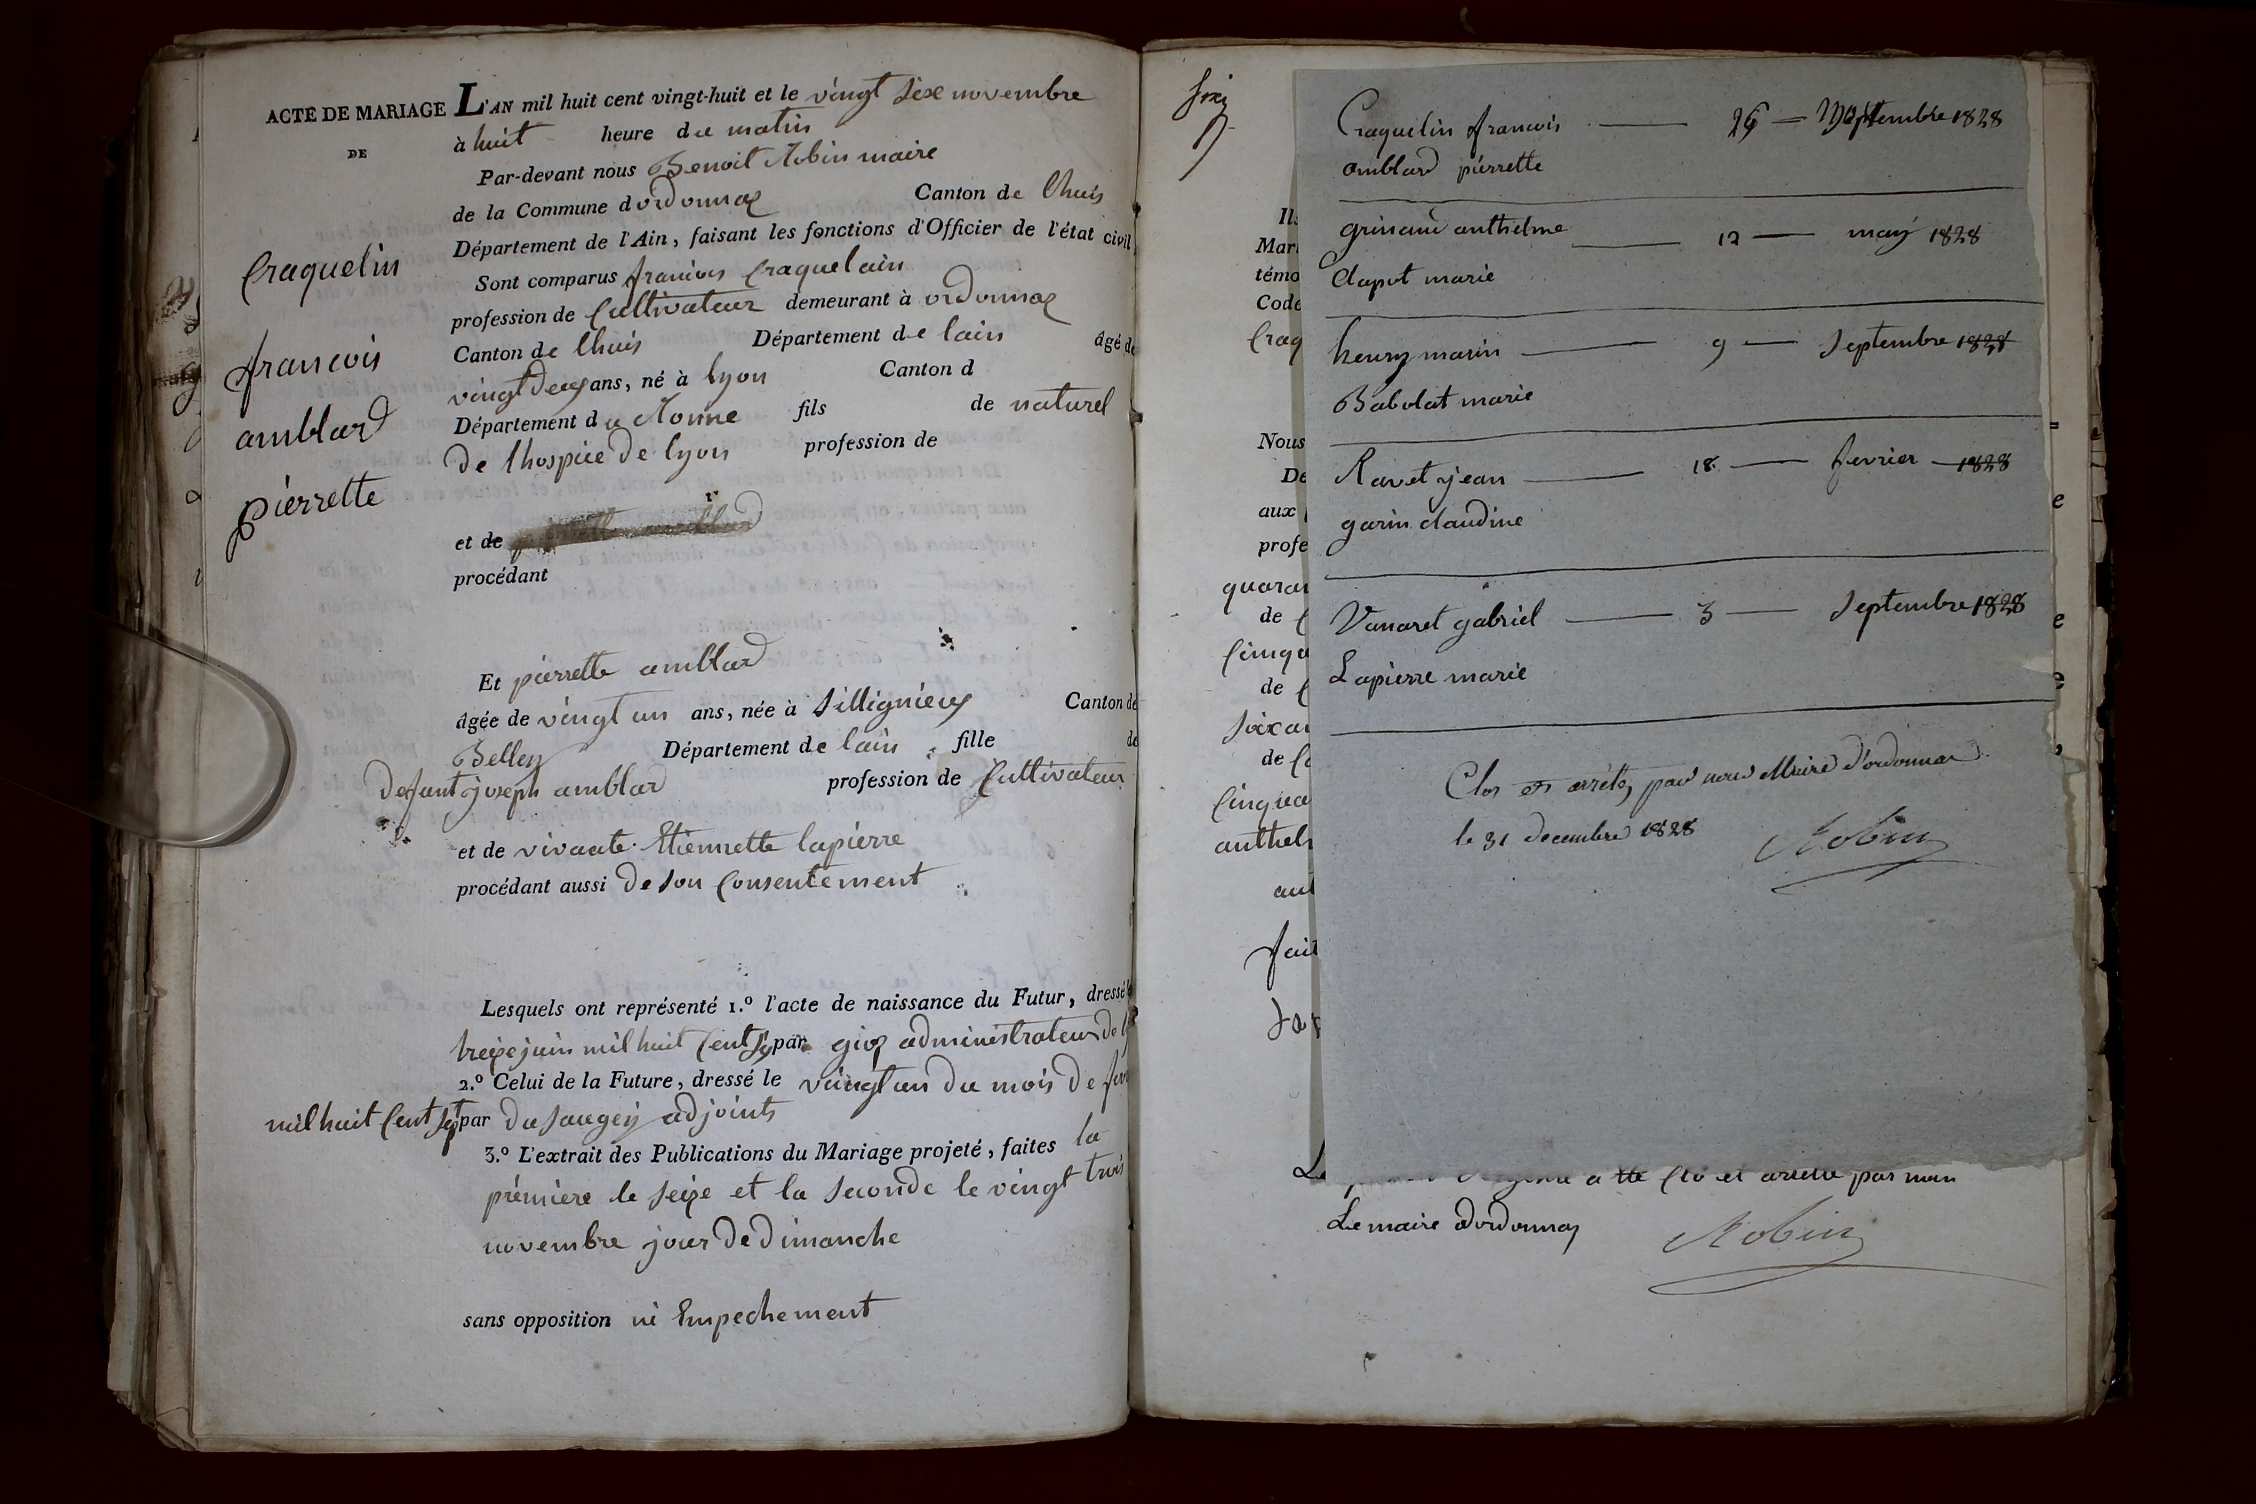 ACTE DE MARIAGE
DE
Craquelin
francois
amblard
pierrette
L'AN mil huit cent vingt-huit et le vingt sixe novembre
à huit heure du matin
Par-devant nous Benoit Robin maire
de la Commune dordonnaz Canton de lhuis
Département de l'Ain, faisant les fonctions d'Officier de l'état civil
Sont comparus francois Craquelain
profession de Cultivateur demeurant à ordonnaz
Canton de lhuis Département de lain âgé de
vingt deux ans, né à lyon Canton d
Département du Ronne fils de naturel
de lhospice de lyon profession de
et de
procédant
Et pierrette amblard
âgée de vingt un ans, née à Sillignieux Canton de
Belley Département de lain fille de
defunt joseph amblard profession de Cultivateur
et de vivante Etiennette lapierre
procédant aussi de son Consentement
Lesquels ont représenté 1.º l'acte de naissance du Futur, dressé
treize juin mil huit Cent six par administrateur de
2.º Celui de la Future, dressé le vaingt un du mois de
mil huit Cent sept par du saugey adjoints
3.º L'extrait des Publications du Mariage projeté, faites la
prémiere le seize et la seconde le vingt trois
novembre jour de dimanche
sans opposition ni Empechement
Ils
Mari
témo
Code
Craq
Nous
De
aux
profe
quaran
de
Cinqu
de
soixan
de
Cinqua
anthel
fait
Craquelin francois 26 1828
amblard pierrette
anthelme 12 may 1828
Clapot marie
henry marin 9 Septembre 1828
Babolat marie
Ravet jean 18 fevrier 1828
garin claudine
Vanaret gabriel 3 Septembre 1828
Lapierre marie
Clos et arrêtez par nous Maire d'ordonnaz
le 31 decembre 1828 Robin
a ete Clo et arrette par moi
Le maire dordonnaz Robin